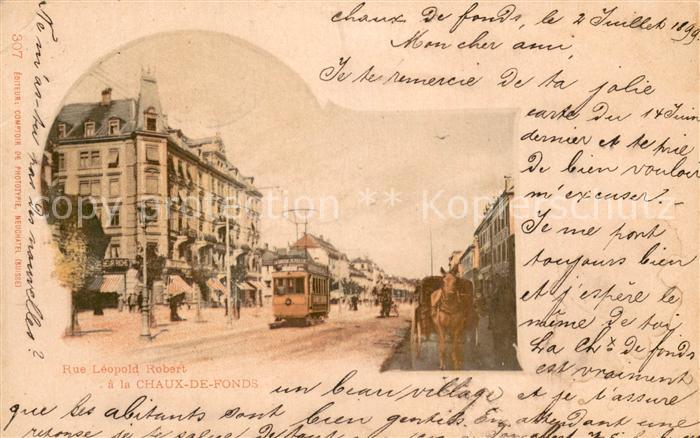 chaux De fonds, le 2 Juillet 1899.
Mon cher ami,
Je te remercie De ta jolie
carte Du 14 Juin
dernier et te prie
De bien vouloir
m'excuser.
Je me port
toujours bien
et j'espère le
même De toi.
La Chx De fonds
est vraiment
un beau village et je t'assure
que ses abitants sont bien gentils. En attendant une
reponse je te salue De tout
N'as-tu pas De nouvelles?
307 ÉDITEUR: COMPTOIR DE PHOTOTYPIE, NEUCHATEL (SUISSE)
Rue Léopold Robert
à la CHAUX-DE-FONDS
copy protection ** Kopierschutz